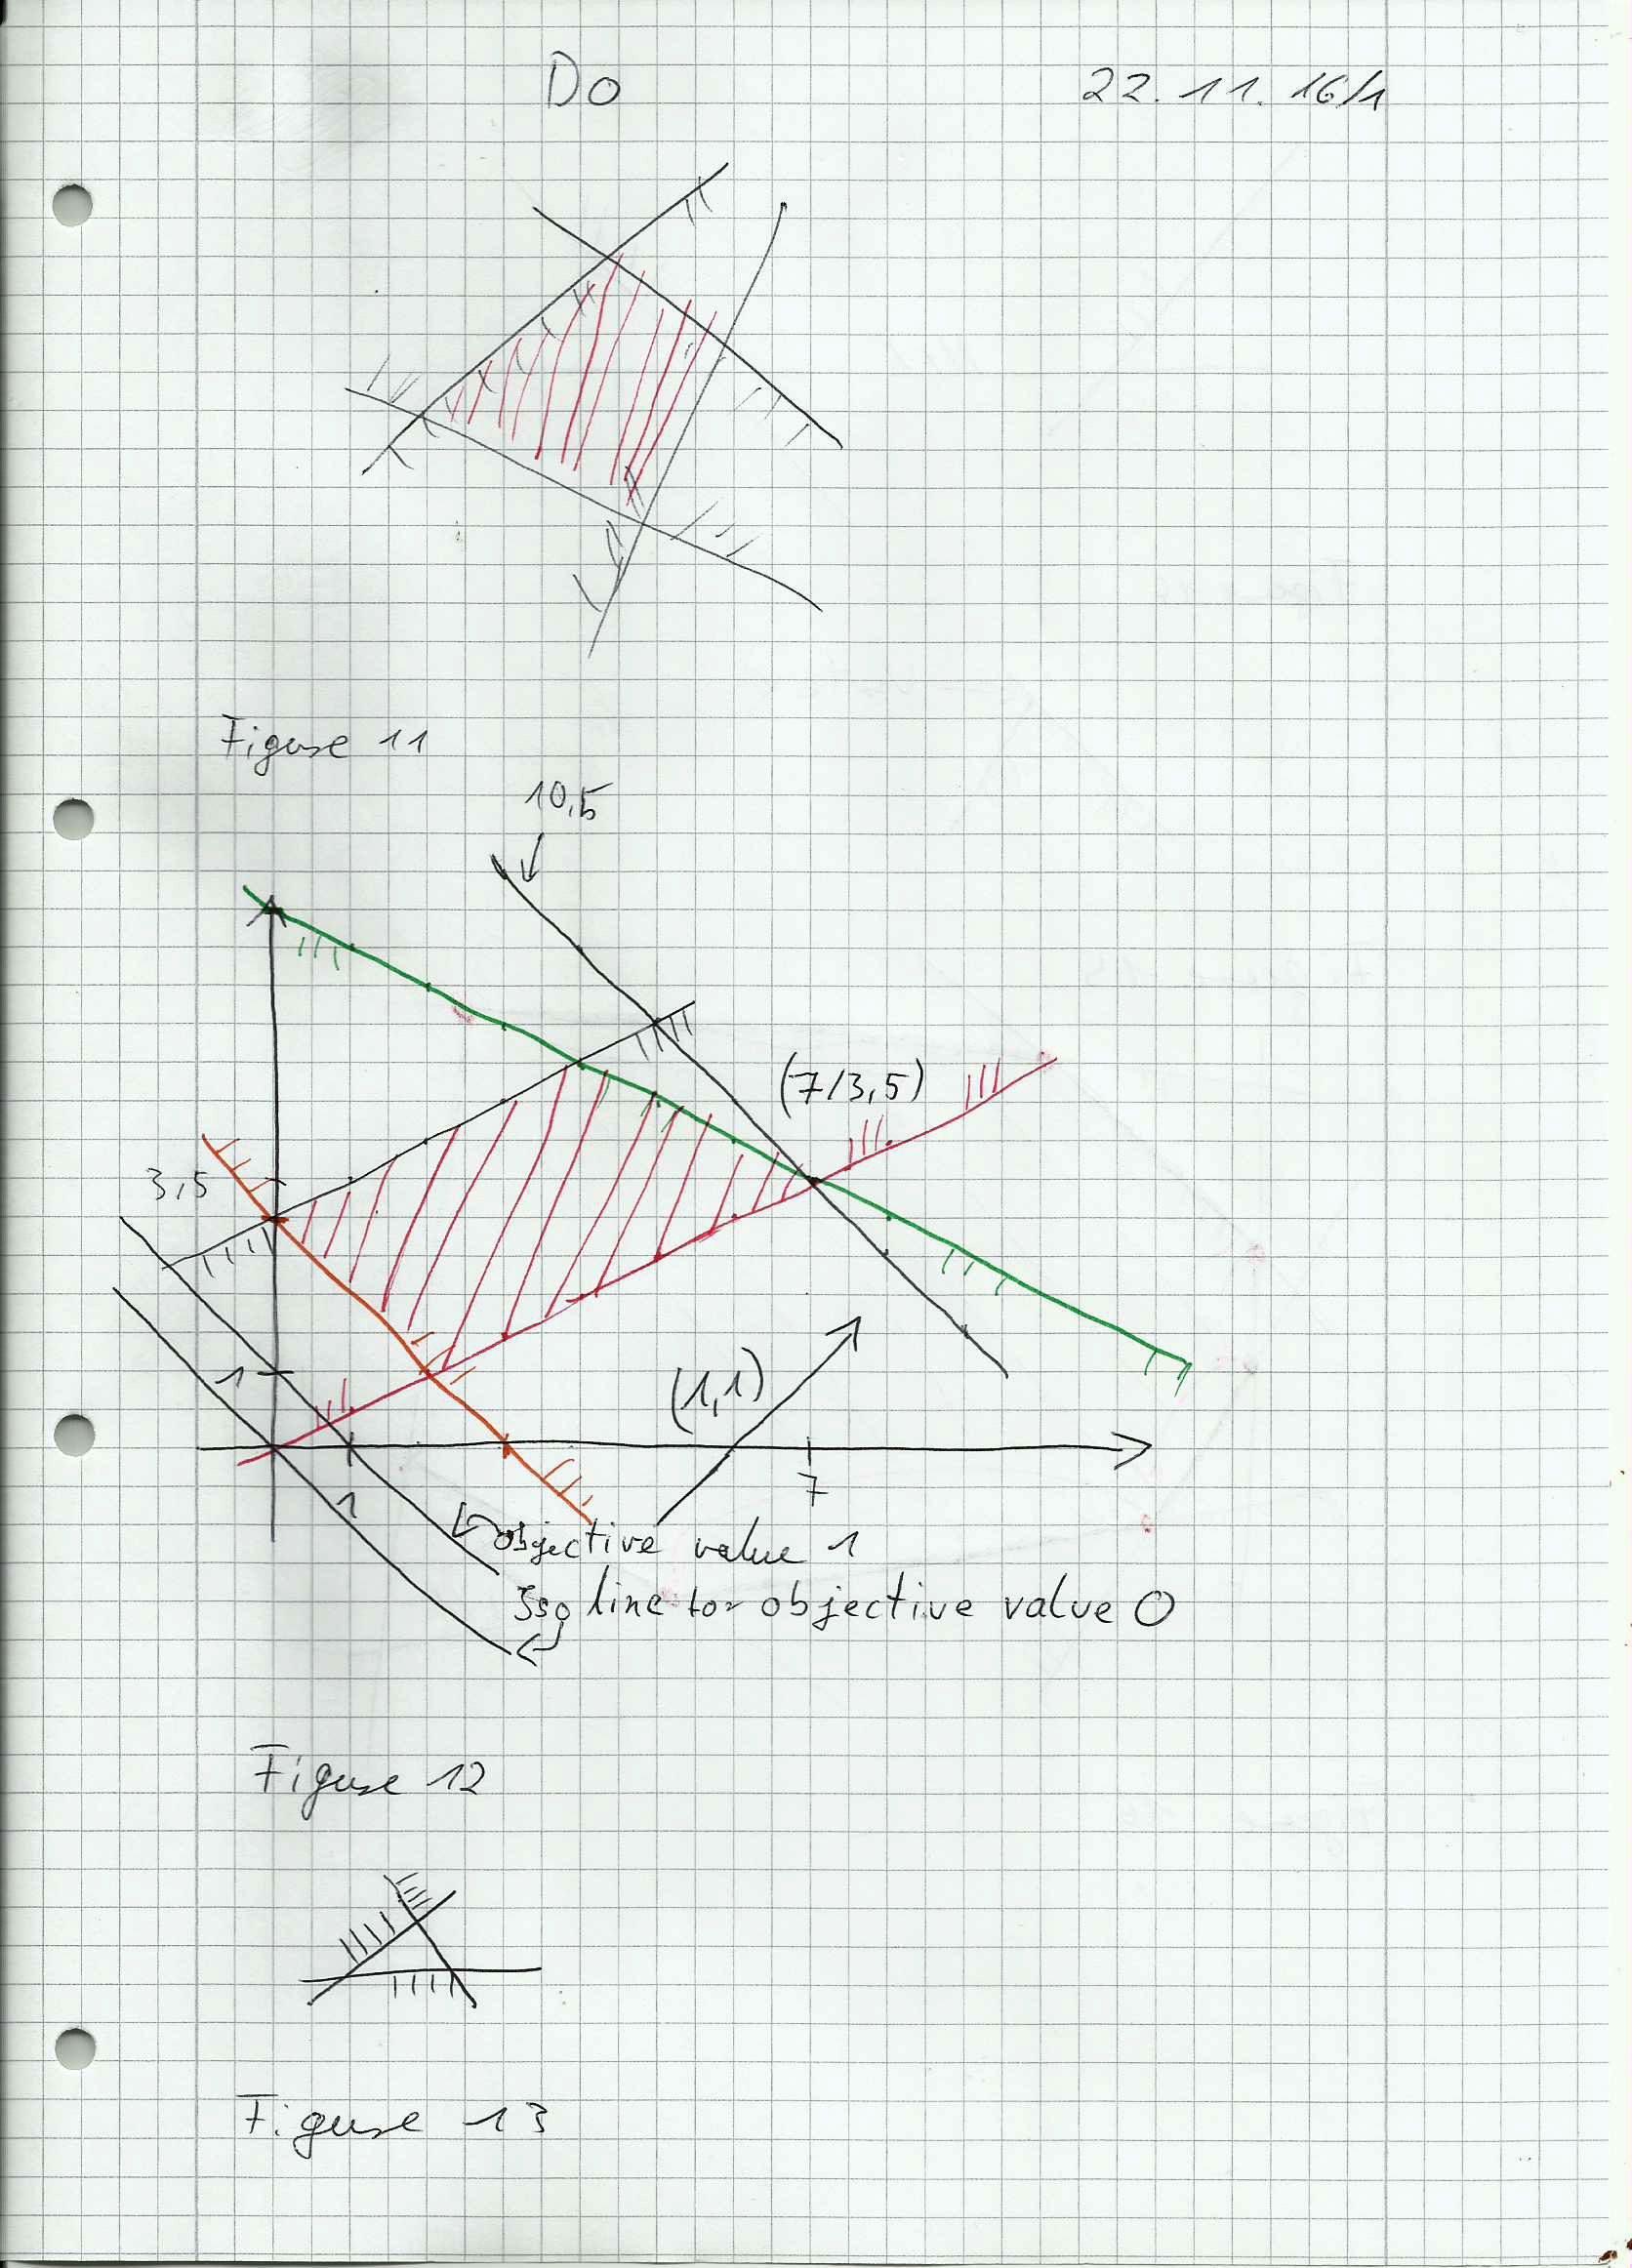 Do 22.11.16/1
Figure 11
10,5
(7/3,5)
3,5
1
(1,1)
1
7
objective value 1
Iso line for objective value 0
Figure 12
Figure 13